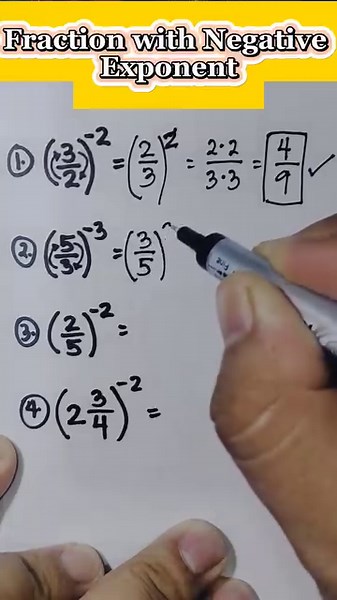 Fraction with Negative
Exponent
① (3/2)⁻² = (2/3)² = 2·2/3·3 = 4/9 ✓
② (5/3)⁻³ = (3/5)
③ (2/5)⁻² =
④ (2 3/4)⁻² =